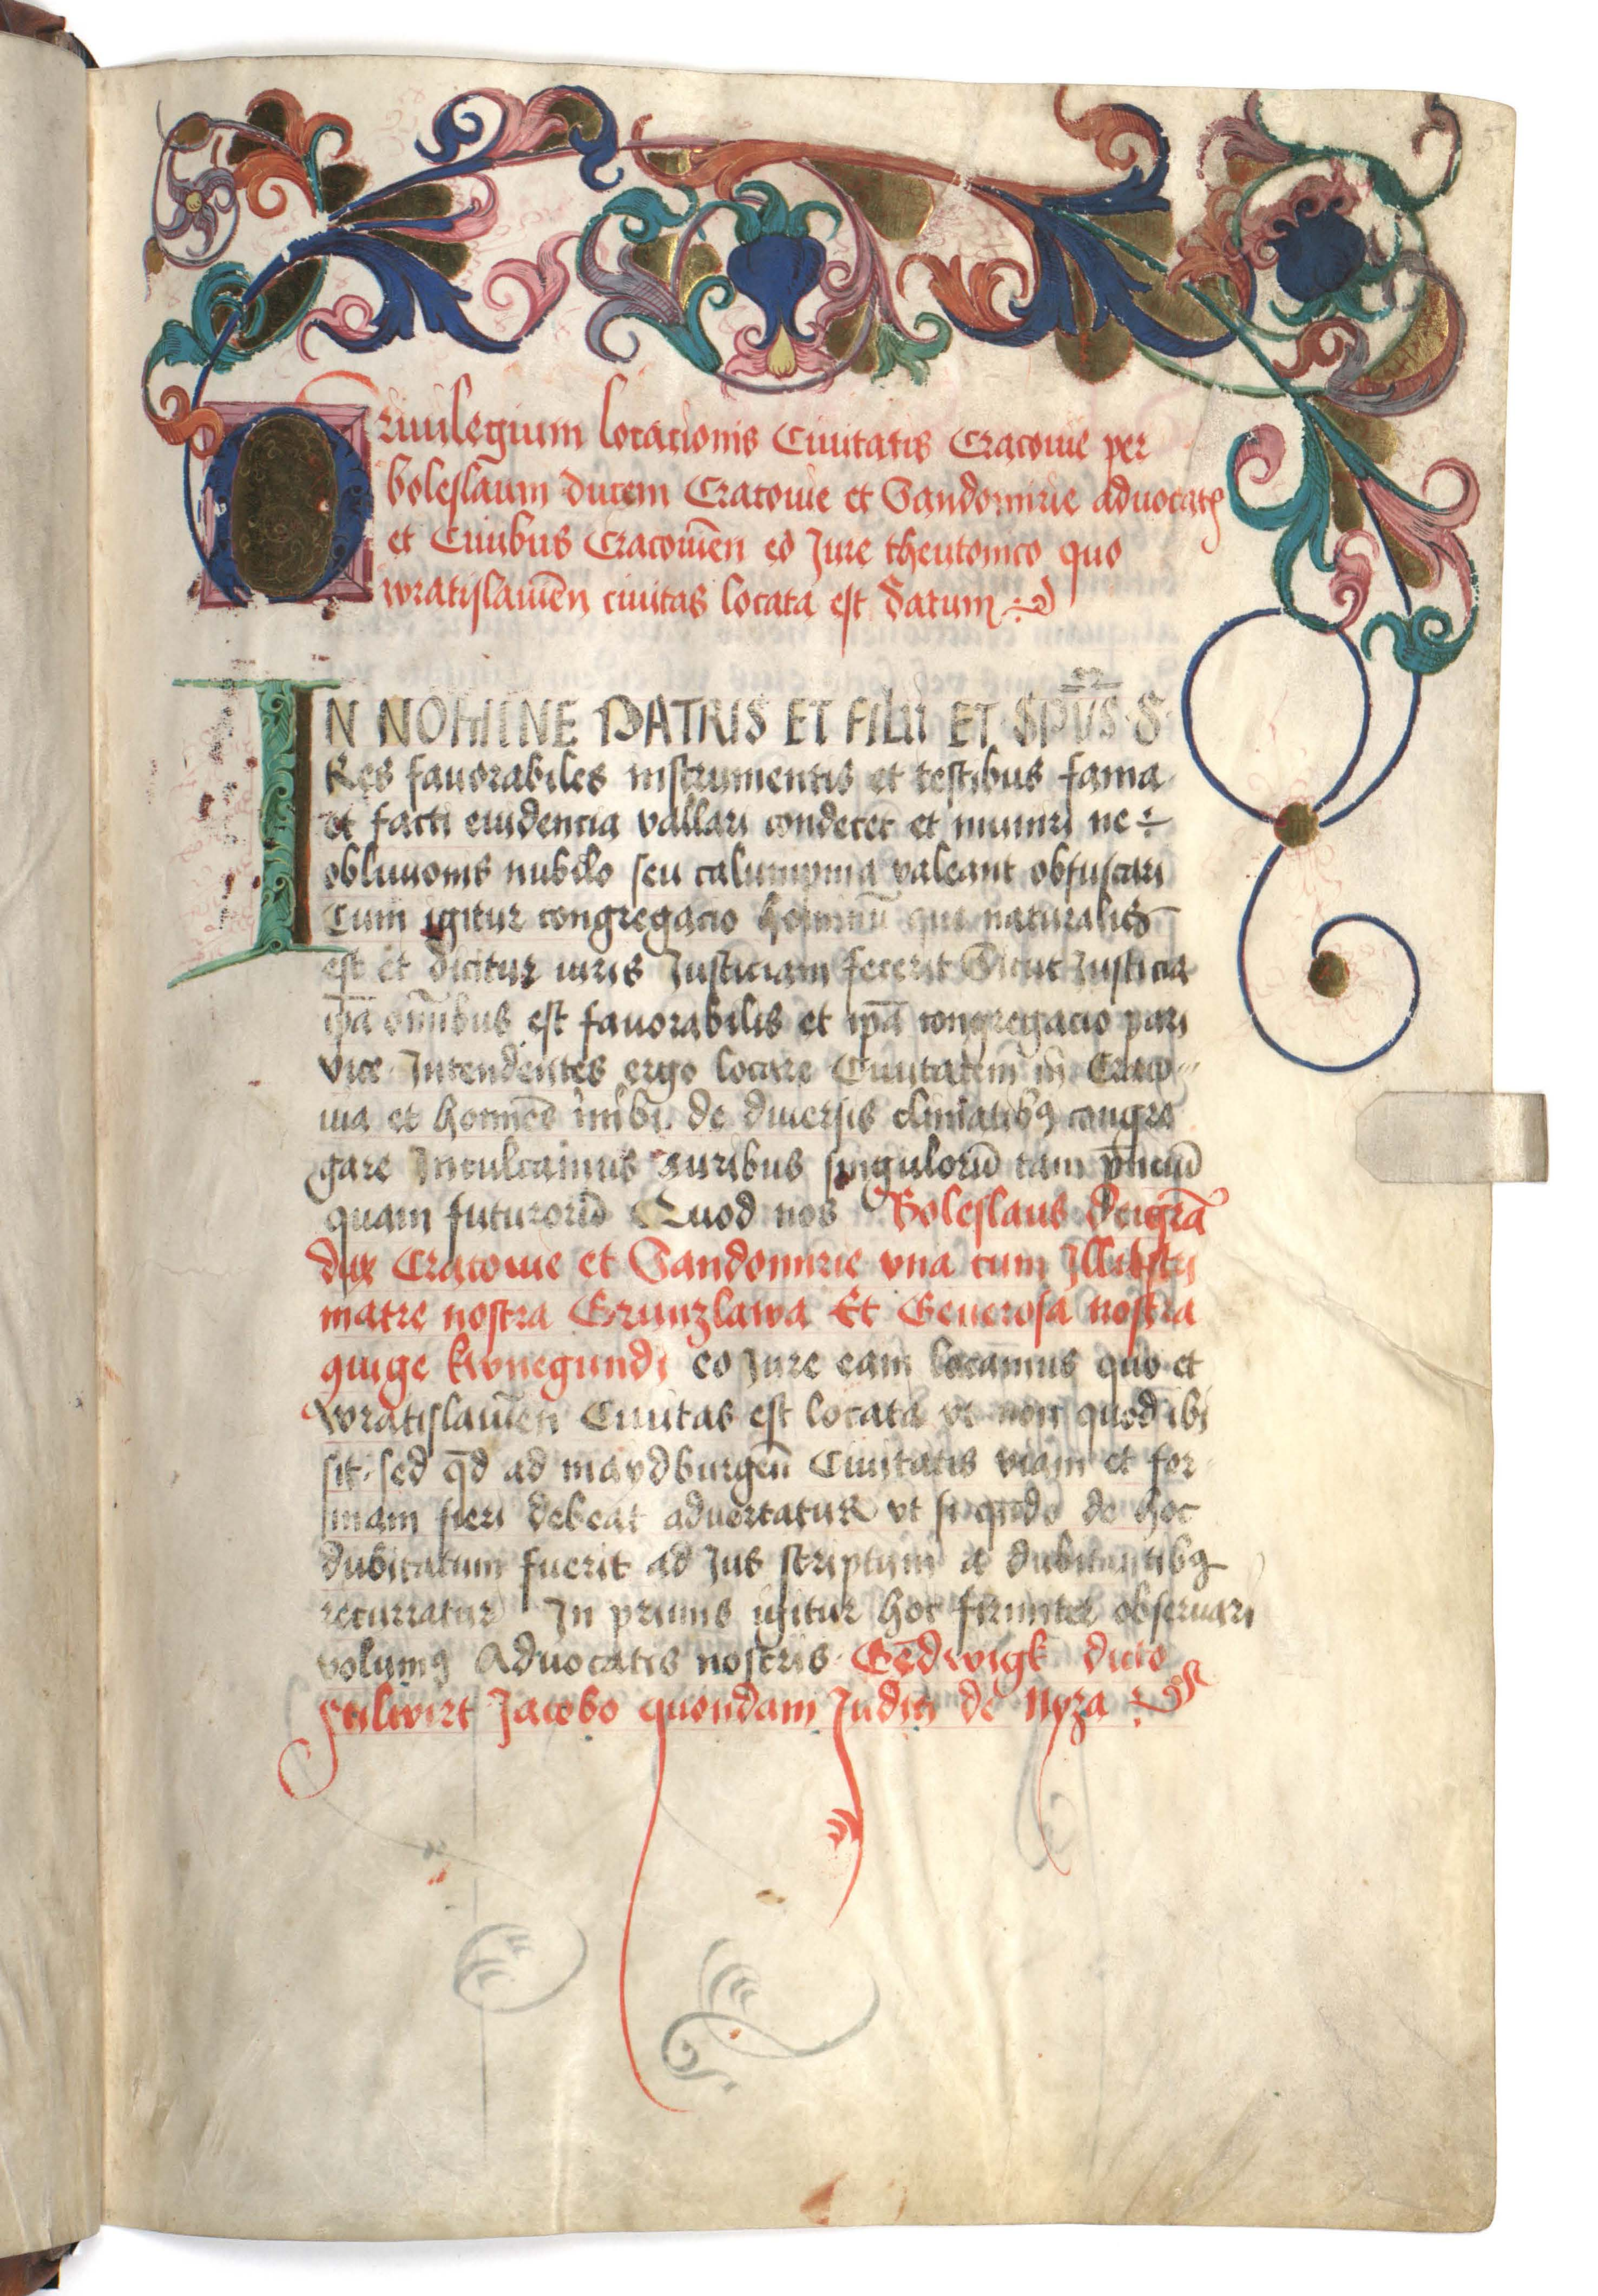 Priuilegium locacionis Ciuitatis Cracouie per
boleslaum ducem Cracouie et Sandomirie aduocatis
et Ciuibus Cracouiēn eo Jure theutonico quo
wratislauiēn ciuitas locata est datum
IN NOMINE PATRIS ET FILII ET SPŪS S
Res fauorabiles instrumentis et testibus fama
et facti euidencia vallari condecet et muniri ne
obliuionis nubilo seu calumpnia valeant obfuscari
Cum igitur congregacio hominū que naturalis
est et dicitur iuris Justiciam fecerit Sicut Justicia
ip̄a om̄ibus est fauorabilis et ip̄a congregacio pari
vice Intendentes ergo locare Ciuitatem in Craco
uia et homīes inibi de diuersis climatibꝰ congre
gare Inculcamus auribus singulorū tam pn̄ciū
quam futurorū Quod nos Boleslaus dei gr̄a
dux Cracouie et Sandomirie vna cum Illustri
matre nostra Grimizlawa Et Generosa nostra
ꝯiuge kvnegundi eo Jure eam locamus quo et
wratislauiēn Ciuitas est locata vt non quod ibi
sit sed qd̄ ad maydburgeñ Ciuitatis viam et for
mam fieri debeat aduertatur vt si qn̄do de hoc
dubitatum fuerit ad Jus scriptum a dubitantibꝰ
recurratur In primis igitur hoc firmiter obseruari
volumꝰ Aduocatis nostris Gedwigk dicto
Stilwirt Jacobo quondam Judici de Nyza